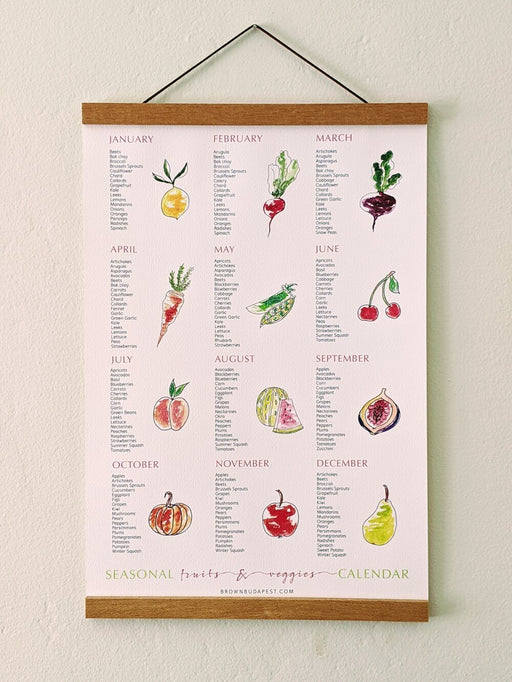 JANUARY
Beets
Bok choy
Broccoli
Brussels Sprouts
Cauliflower
Chard
Collards
Grapefruit
Kale
Leeks
Lemons
Mandarins
Onions
Oranges
Parsnips
Radishes
Spinach
FEBRUARY
Arugula
Beets
Bok choy
Broccoli
Brussels Sprouts
Cauliflower
Celery
Chard
Collards
Grapefruit
Kale
Leeks
Lemons
Mandarins
Onions
Oranges
Radishes
Spinach
MARCH
Artichokes
Arugula
Asparagus
Beets
Broccoli
Brussels Sprouts
Cabbage
Cauliflower
Collards
Green Garlic
Kale
Leeks
Lemons
Lettuce
Mandarins
Onions
Oranges
Snow Peas
APRIL
Artichokes
Arugula
Asparagus
Avocados
Beets
Bok choy
Carrots
Cauliflower
Chard
Collards
Fennel
Garlic
Green Garlic
Kale
Leeks
Lemons
Lettuce
Peas
Strawberries
MAY
Apricots
Artichokes
Asparagus
Avocados
Beets
Blackberries
Blueberries
Cabbage
Carrots
Cherries
Collards
Garlic
Green Garlic
Kale
Leeks
Lettuce
Peas
Rhubarb
Strawberries
JUNE
Apricots
Avocados
Basil
Blueberries
Carrots
Cherries
Collards
Corn
Garlic
Kale
Leeks
Lettuce
Nectarines
Peas
Plums
Strawberries
Summer Squash
Tomatoes
JULY
Apricots
Avocados
Basil
Blueberries
Carrots
Cherries
Collards
Corn
Garlic
Green Beans
Leeks
Lettuce
Nectarines
Peaches
Raspberries
Strawberries
Summer Squash
Tomatoes
AUGUST
Avocados
Blackberries
Blueberries
Corn
Cucumbers
Eggplant
Figs
Grapes
Melons
Nectarines
Okra
Peaches
Peppers
Plums
Potatoes
Raspberries
Summer Squash
Tomatoes
SEPTEMBER
Apples
Avocados
Blackberries
Corn
Cucumbers
Eggplant
Figs
Grapes
Nectarines
Peaches
Pears
Peppers
Plums
Pomegranates
Potatoes
Tomatoes
Zucchini
OCTOBER
Apples
Artichokes
Brussels Sprouts
Cucumbers
Eggplant
Figs
Grapes
Kiwi
Mushrooms
Pears
Peppers
Persimmons
Plums
Pomegranates
Potatoes
Pumpkin
Winter Squash
NOVEMBER
Apples
Artichokes
Beets
Brussels Sprouts
Grapes
Kiwi
Mushrooms
Oranges
Pears
Peppers
Persimmons
Plums
Pomegranates
Potatoes
Pumpkin
Radishes
Winter Squash
DECEMBER
Apples
Artichokes
Beets
Broccoli
Brussels Sprouts
Grapefruit
Kale
Kiwi
Lemons
Mandarins
Mushrooms
Oranges
Pears
Persimmons
Pomegranates
Potatoes
Radishes
Spinach
Sweet Potato
Winter Squash
SEASONAL fruits & veggies CALENDAR
BROWNBUDAPEST.COM